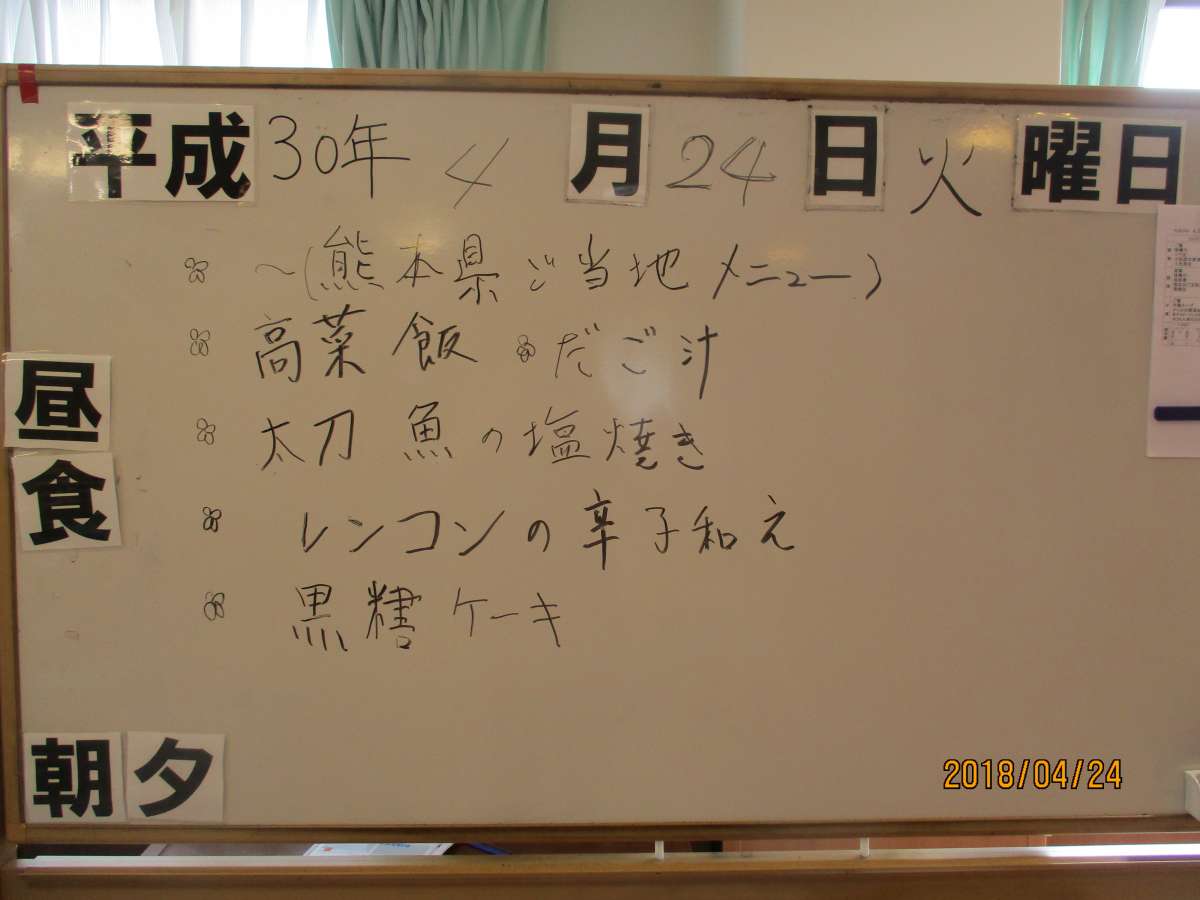 平成30年 4月24日火曜日
～(熊本県ご当地メニュー)
高菜飯 だご汁
昼食
太刀魚の塩焼き
レンコンの辛子和え
黒糖ケーキ
朝夕
2018/04/24